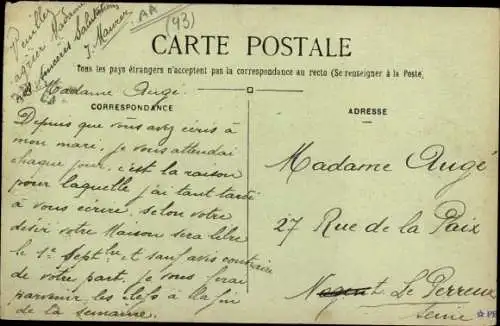 (43)
AA
Veuillez
agréer Madame
mes sincères Salutations
J. Maurer
CARTE POSTALE
Tous les pays étrangers n'acceptent pas la correspondance au recto (Se renseigner à la Poste)
Madame Augé.
CORRESPONDANCE
Depuis que vous avez écris à
mon mari, je vous attendai
chaque jour, c'est la raison
pour laquelle j'ai tant tardé
à vous écrire, selon votre
désir votre Maison sera libre
le 1er Septbre, et sauf avis contraire
de votre part. Je vous ferai
parvenir les clefs à la fin
de la semaine.
ADRESSE
Madame Augé
27 Rue de la Paix
Nogent Le Perreux
Seine